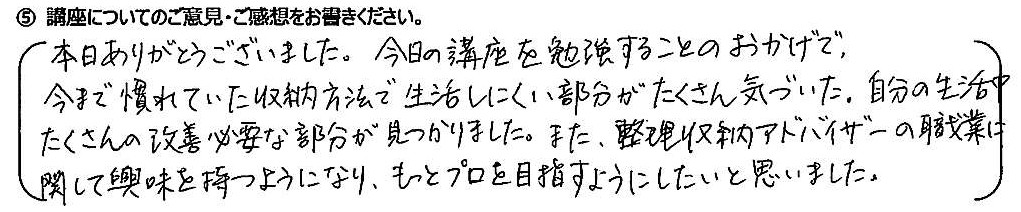 ⑤ 講座についてのご意見・ご感想をお書きください。
本日ありがとうございました。今日の講座を勉強することのおかげで、
今まで慣れていた収納方法で生活しにくい部分がたくさん気づいた。自分の生活や
たくさんの改善必要な部分が見つかりました。また、整理収納アドバイザーの職業に
関して興味を持つようになり、もっとプロを目指すようにしたいと思いました。